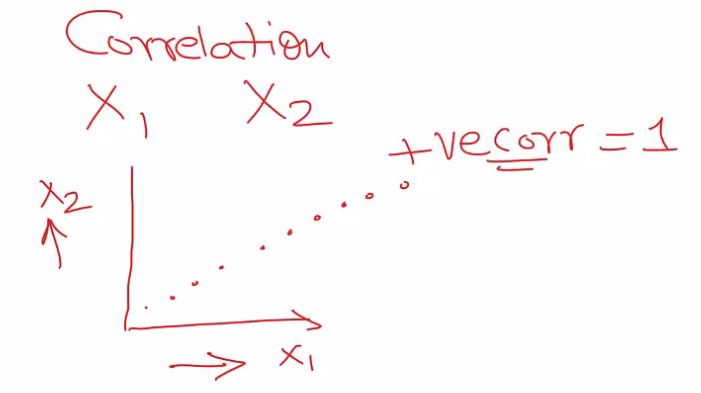 Correlation
X1 X2
+ve corr = 1
X2
X1